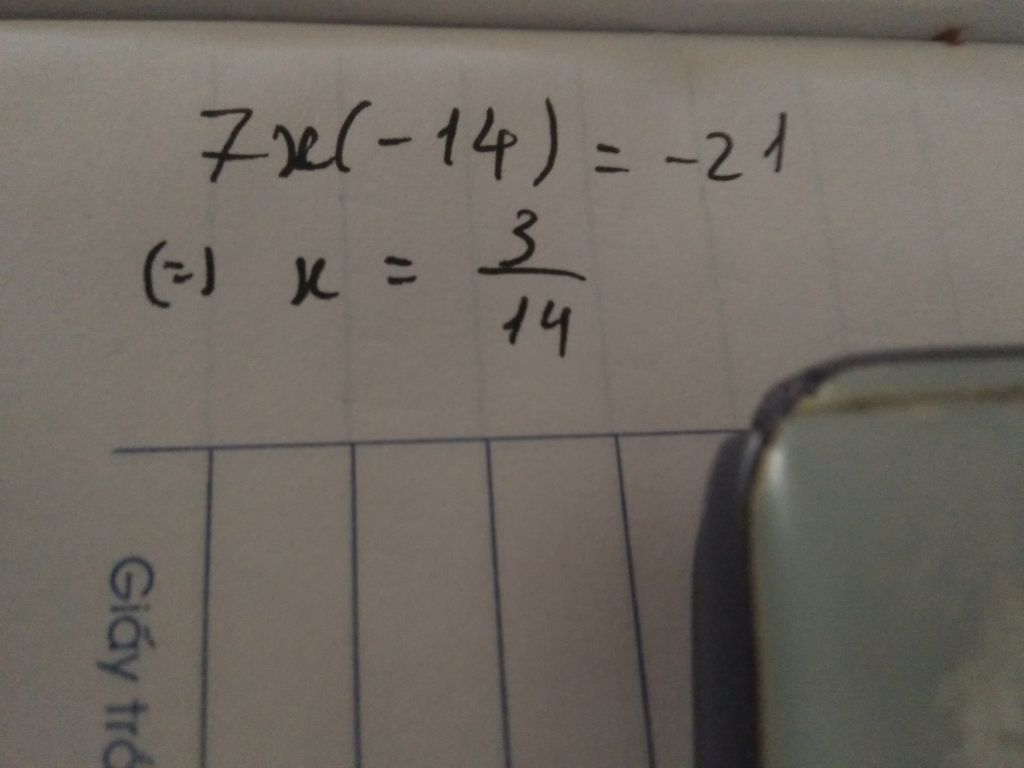 7x(-14) = -21
(=) x = 3/14
Giấy